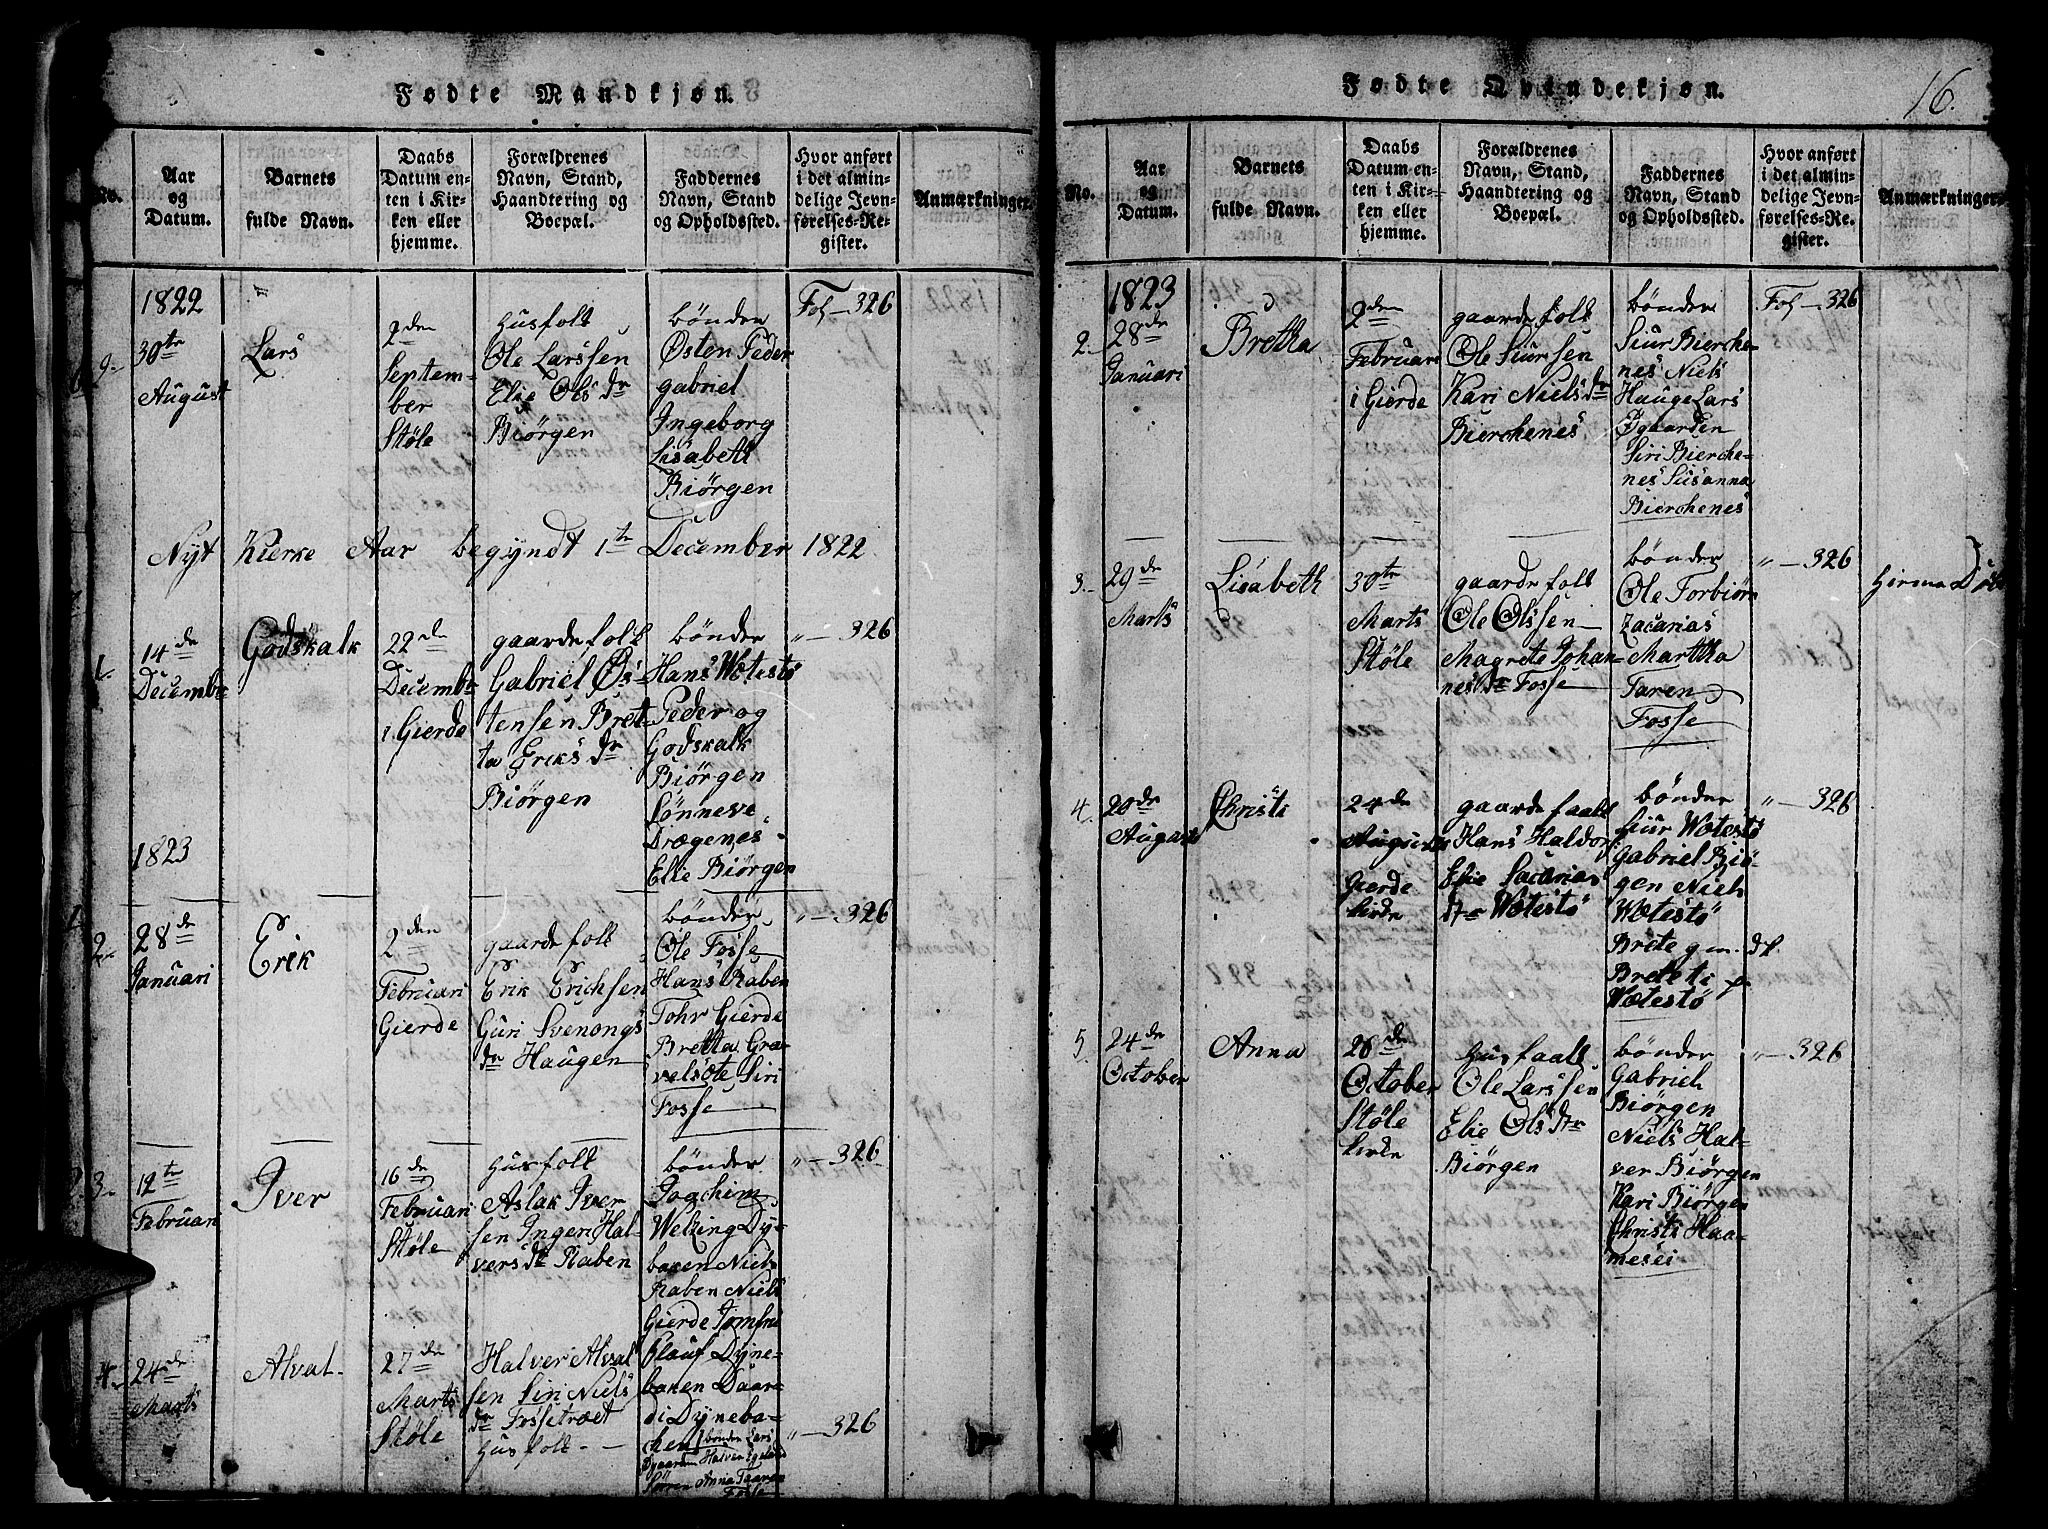 Fødte Mandkjøn.
No.
Aar
og
Datum.
Barnets
fulde Navn.
Daabs
Datum en-
ten i Kir-
ken eller
hjemme.
Forældrenes
Navn, Stand,
Haandtering og
Boepæl.
Faddernes
Navn, Stand
og Opholdssted.
Hvor anført
i det almin-
delige Jevn-
førelses-Re-
gister.
Anmærkninger.
1822
9.
30te
August
Lars
2den
Septem-
ber
Støle
Husfolk
Ole Larssen
Elie Ols dr
Biørgen
bønder
Østen Peder
gabriel
Ingeborg
Lisabeth
Biørgen
Fol — 326
Nyt Kierke Aar begyndt 1te December 1822
1.
14de
December
Godskalk
22de
Decembr
i Gierde
gaardefolk
Gabriel Øs-
tensen Bret-
ta Eriks dr
Biørgen
bønder
Hans Wætestø
Peder og
Godskalk
Biørgen
Lønneve
Drægenes
Elie Biørgen
" — 326
1823
2.
28de
Januari
Erik
2den
Februari
Gierde
gaardefolk
Erik Erichsen
Guri Svenongs
dr Haugen
bønder
Ole Fosse
Hans Raben
Tohr Gierde
Bretta Græ-
velsæte Siri
Fosse
" — 326
3.
12te
Februari
Iver
16de
Februari
Støle
Husfolk
Aslak Iver
sen Ingeri Hal-
vers dr Raben
bønder
Jochim
Welzing Dy-
baken Niels
Raben Niels
Gierde
Dyne-
baken Daar-
di Dyneba-
chen
" — 326
4.
24de
Marts
Alval.
27de
Marts
Støle
Halver Alval
sen Siri Niels
dr Fossetræet
Husfolk
bønder Lars
Øgaaren Halver
Anna
Fosse
" — 326
Fødte Qvindekjøn.
16.
No.
Aar
og
Datum.
Barnets
fulde Navn.
Daabs
Datum en-
ten i Kir-
ken eller
hjemme.
Forældrenes
Navn, Stand,
Haandtering og
Boepæl.
Faddernes
Navn, Stand
og Opholdssted.
Hvor anført
i det almin-
delige Jevn-
førelses-Re-
gister.
Anmærkninger.
1823
2.
28de
Januari
Bretka
2den
Februari
i Gierde
gaardefolk
Ole Siursen
Kari Niels dr
Bierchenes
bønder
Siur Bierche-
nes Niels
Hauge Lars
Øgaarden
Siri Bierche-
nes Susanna
Bierchenes
Fol — 326
3.
29de
Marts
Lisabeth
30te
Marts
Støle
gaardefolk
Ole Olssen
Magrete Johan-
nes dr Fosse
bønder
Ole Torbiørn
Zacarias
Martka
Taren
Fosse
" — 326
Hiema
4.
20de
August
Christi
24de
August
Gierde
kirke
gaardefaalk
Hans Haldor
Elie Sacarias
dtr Wætestø
bønder
Siur Wætestø
Gabriel Biø-
gen Niels
Wætestø
Brete gm.
Brete ti
Wætestø
" — 326
5.
24de
October
Anna
26de
October
Støle
kirke
Husfaalk
Ole Larssen
Elie Ols dtr
Biørgen
bønder
Gabriel
Biørgen
Niels Hal-
ver Biørgen
Kari Biørgen
Christi Haa-
mesei
" — 326